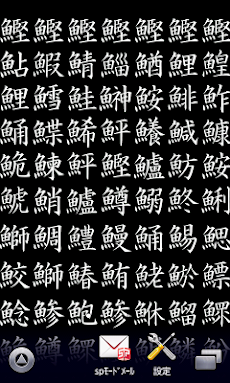 鰹鰹鰹鰹鰹鰹鰹
鮎鰕鯖鯔鰌鯉鰉
鯉鱈鮭鰰鮟鯡鮓
鯒鰈鯑鮃鱶鰔鱇
鮠鰊鮃鰹鱸魴鮟
鯱鮹鱸鱒鰯鮗鯏
鰤鯛鱧鰻鯒鯣鰓
鮫鰤鰆鮪鮱鯲鰾
鯰鯵鮑鯵鮴鰡
spﾓｰﾄﾞﾒｰﾙ 設定